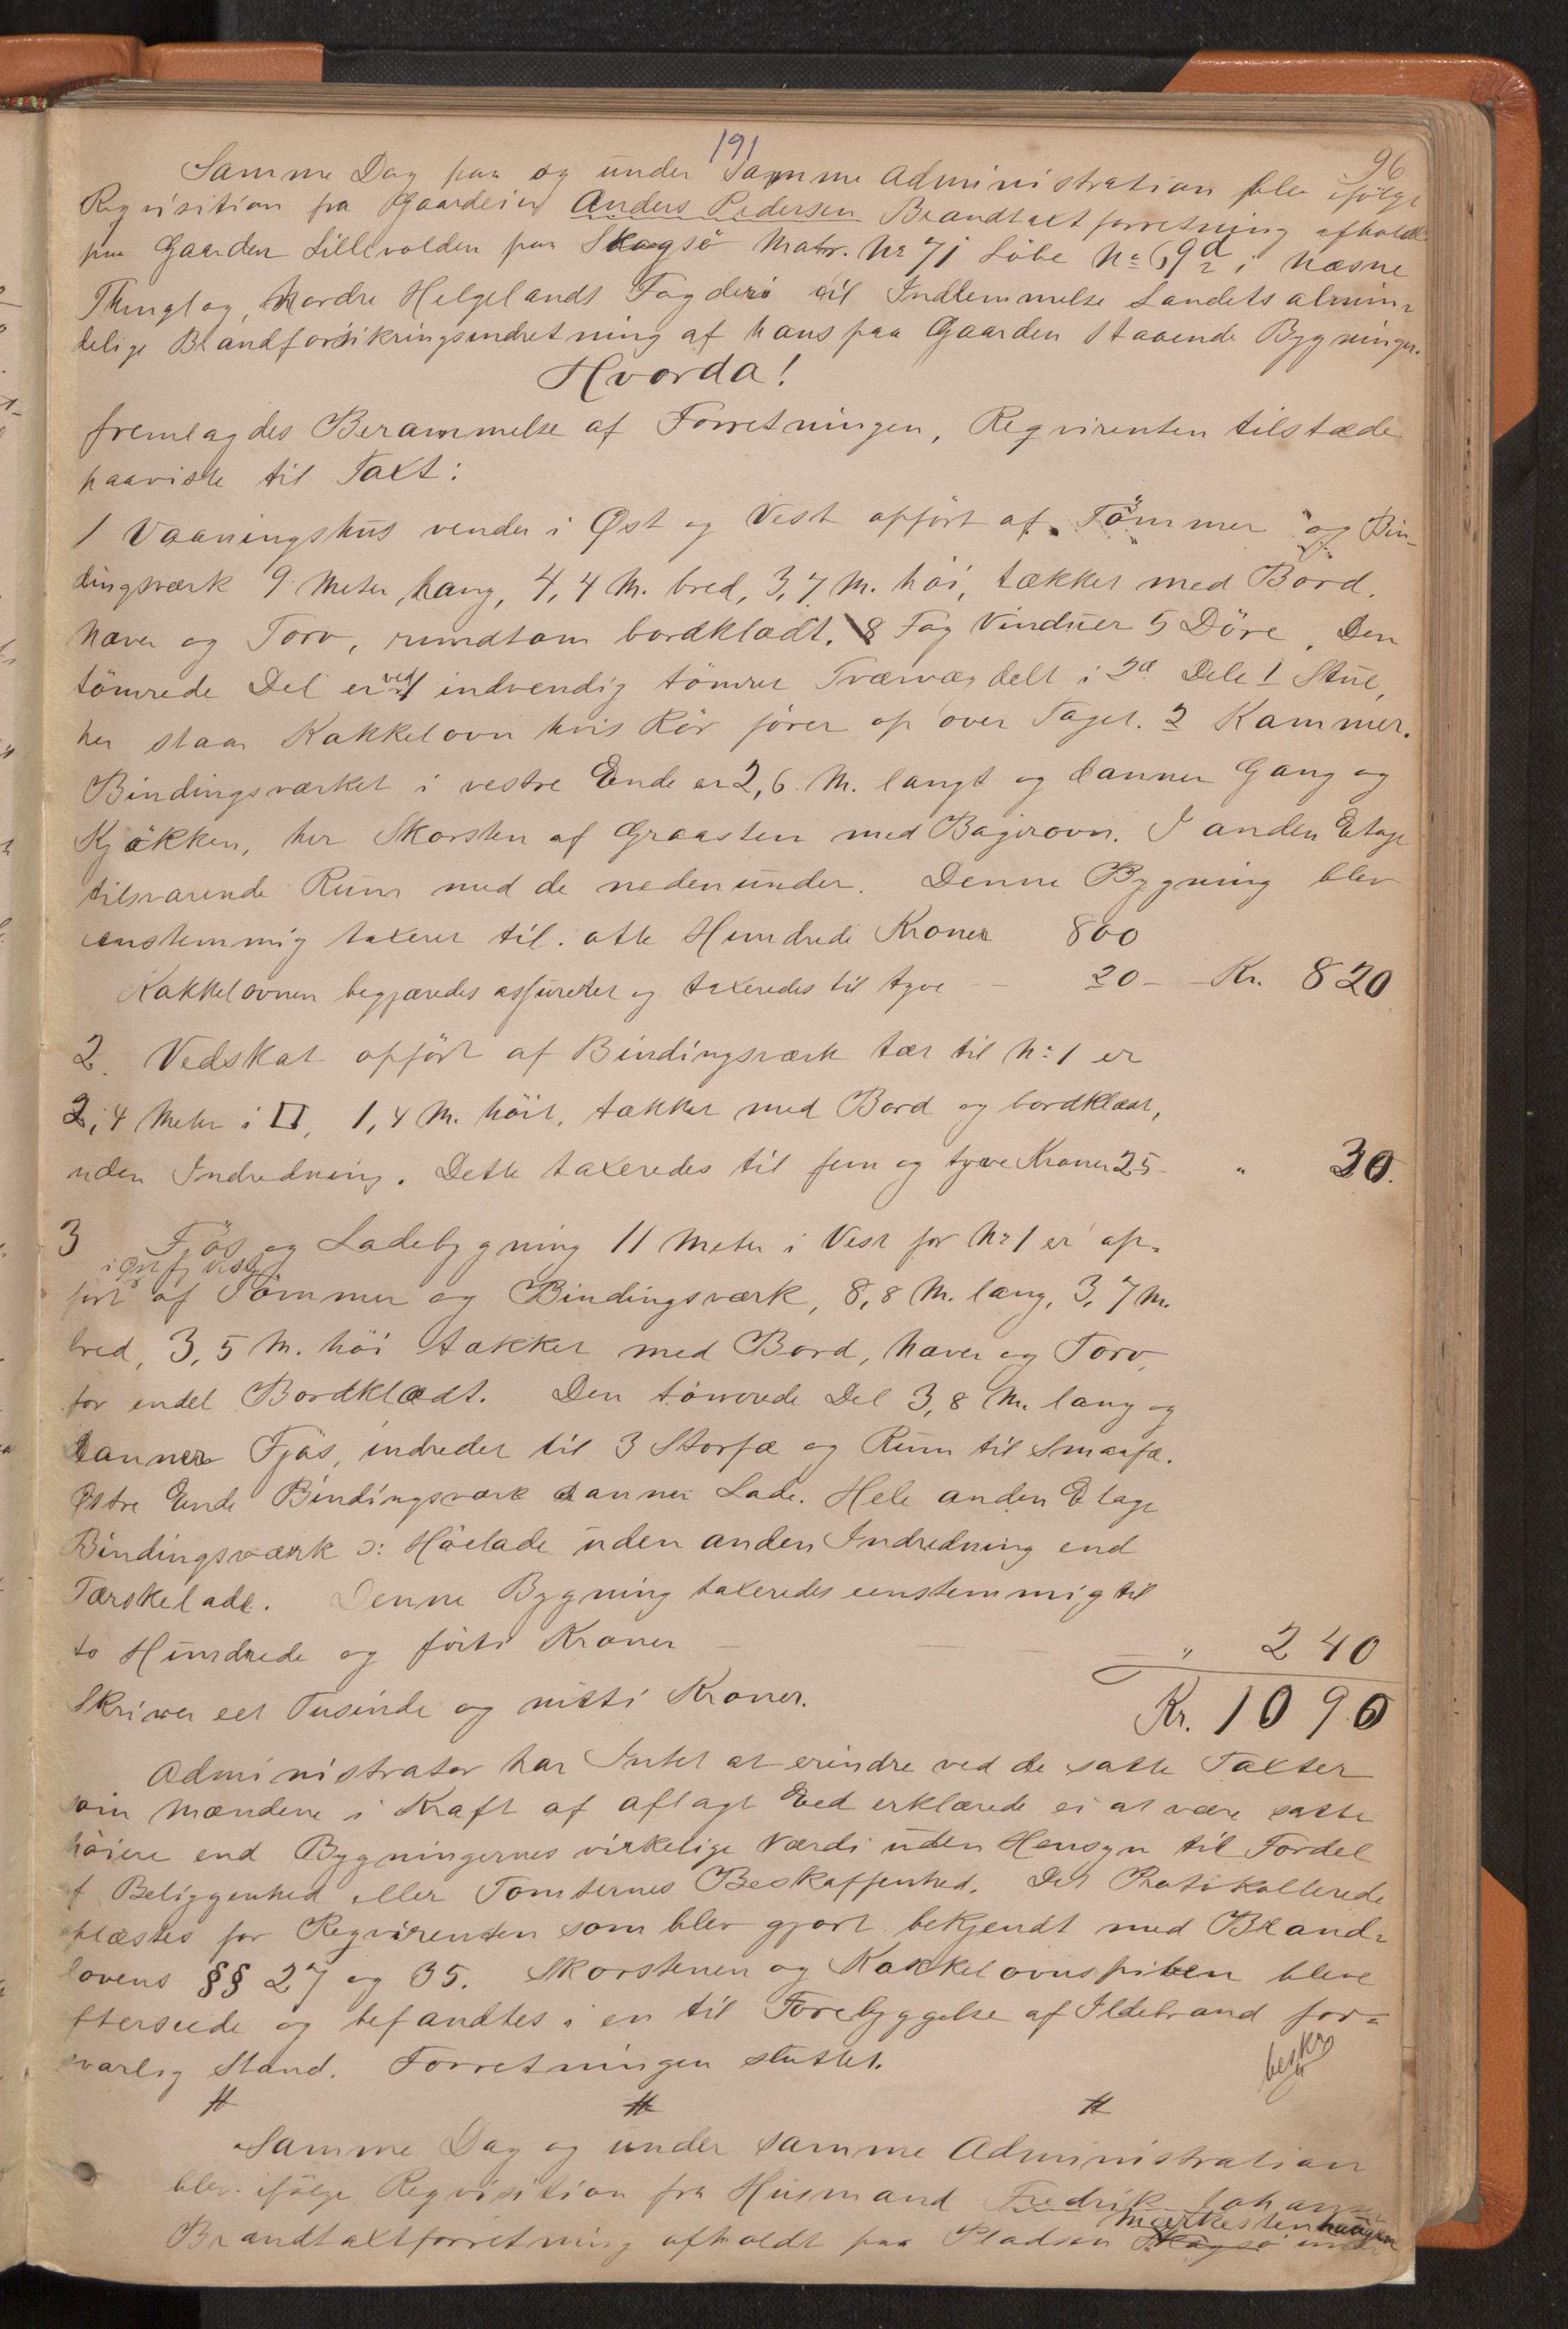 191
96
Samme Dag paa og under samme Administration blev ifølge
Reqvisition fra Gaardeier Anders Pedersen Brandtaxtforretning afholdt
paa Gaarden Lillevolden paa Skogsö Matr. No 71 Löbe No 69 d 2 i Næsne
Thinglag, Nordre Helgelands Fogderi til Indlemmelse Landets almin-
delige Brandforsikringsindretning af hans paa Gaarden staaende Bygninger.
Hvorda!
fremlagdes Berammelse af Forretningen, Reqvirenten tilstæde
paaviste til Taxt:
1 Vaaningshus vender i Øst og Vest opfört af Tömmer og Bin-
dingsværk 9 Meter lang, 4,4 M. bred, 3,7 M. höi, tækket med Bord,
Næver og Torv, rundtom bordklædt. 8 Fag Vinduer 5 Döre. Den
tömrede Del er ved 1 indvendig tömret Tværvæg delt i 2de Dele 1 Stue,
her staar Kakkelovn hvis Rör fører op over Taget. 2 Kammer.
Bindingsværket i vestre Ende er 2,6 M. langt og danner Gang og
Kjökken, her Skorsten af Graasten med Bagerovn. I anden Etage
tilsvarende Rum med de nedenunder. Denne Bygning blev
enstemmig taxeret til otte Hundrede Kroner 800
Kakkelovnen begjæredes assureret og taxeredes til tyve — 20 — Kr. 820
2. Vedskot opfört af Bindingsværk tæt til No 1 er
2,4 Meter i □, 1,4 M. höit, tækket med Bord og bordklædt,
uden Indredning. Dette taxeredes til fem og tyve Kroner 25 — " 30.
3 Fjös og Ladebygning 11 Meter i Vest for No 1 er op-
i Øst og Vest
fört af Tömmer og Bindingsværk, 8,8 M. lang, 3,7 M.
bred, 3,5 M. höi tækket med Bord, Næver og Torv,
for endel Bordklædt. Den tömrede Del 3,8 M. lang og
danner Fjös, indredet til 3 Storfæ og Rum til Smaafæ.
Østre Ende Bindingsværk danner Lade. Hele anden Etage
Bindingsværk ɔ: Höelade uden anden Indredning end
Tærskelade. Denne Bygning taxeredes eenstemmig til
to Hundrede og förti Kroner — — " 240
Skriver eet Tusinde og nitti Kroner. Kr. 1090
Administrator har Intet at erindre ved de satte Taxter
som Mændene i Kraft af aflagt Eed erklærede ei at være satte
höiere end Bygningernes virkelige Værdi uden Hensyn til Fordel
f Beliggenhed eller Tomternes Beskaffenhed. Det Protokollerede
plæstes for Reqvirenten som blev gjort bekjendt med Brand-
lovens §§ 27 og 35. Skorstenen og Kakkelovnspiben bleve
ftersede og befandtes i en til Forebyggelse af Ildebrand for-
svarlig Stand. Forretningen sluttet.
beskr
# # #
Samme Dag og under samme Administration
blev ifölge Reqvisition fra Husmand Fredrik Johansen
Mærkestenhaugen
Brandtaxtforretning afholdt paa Pladsen Skogsö under